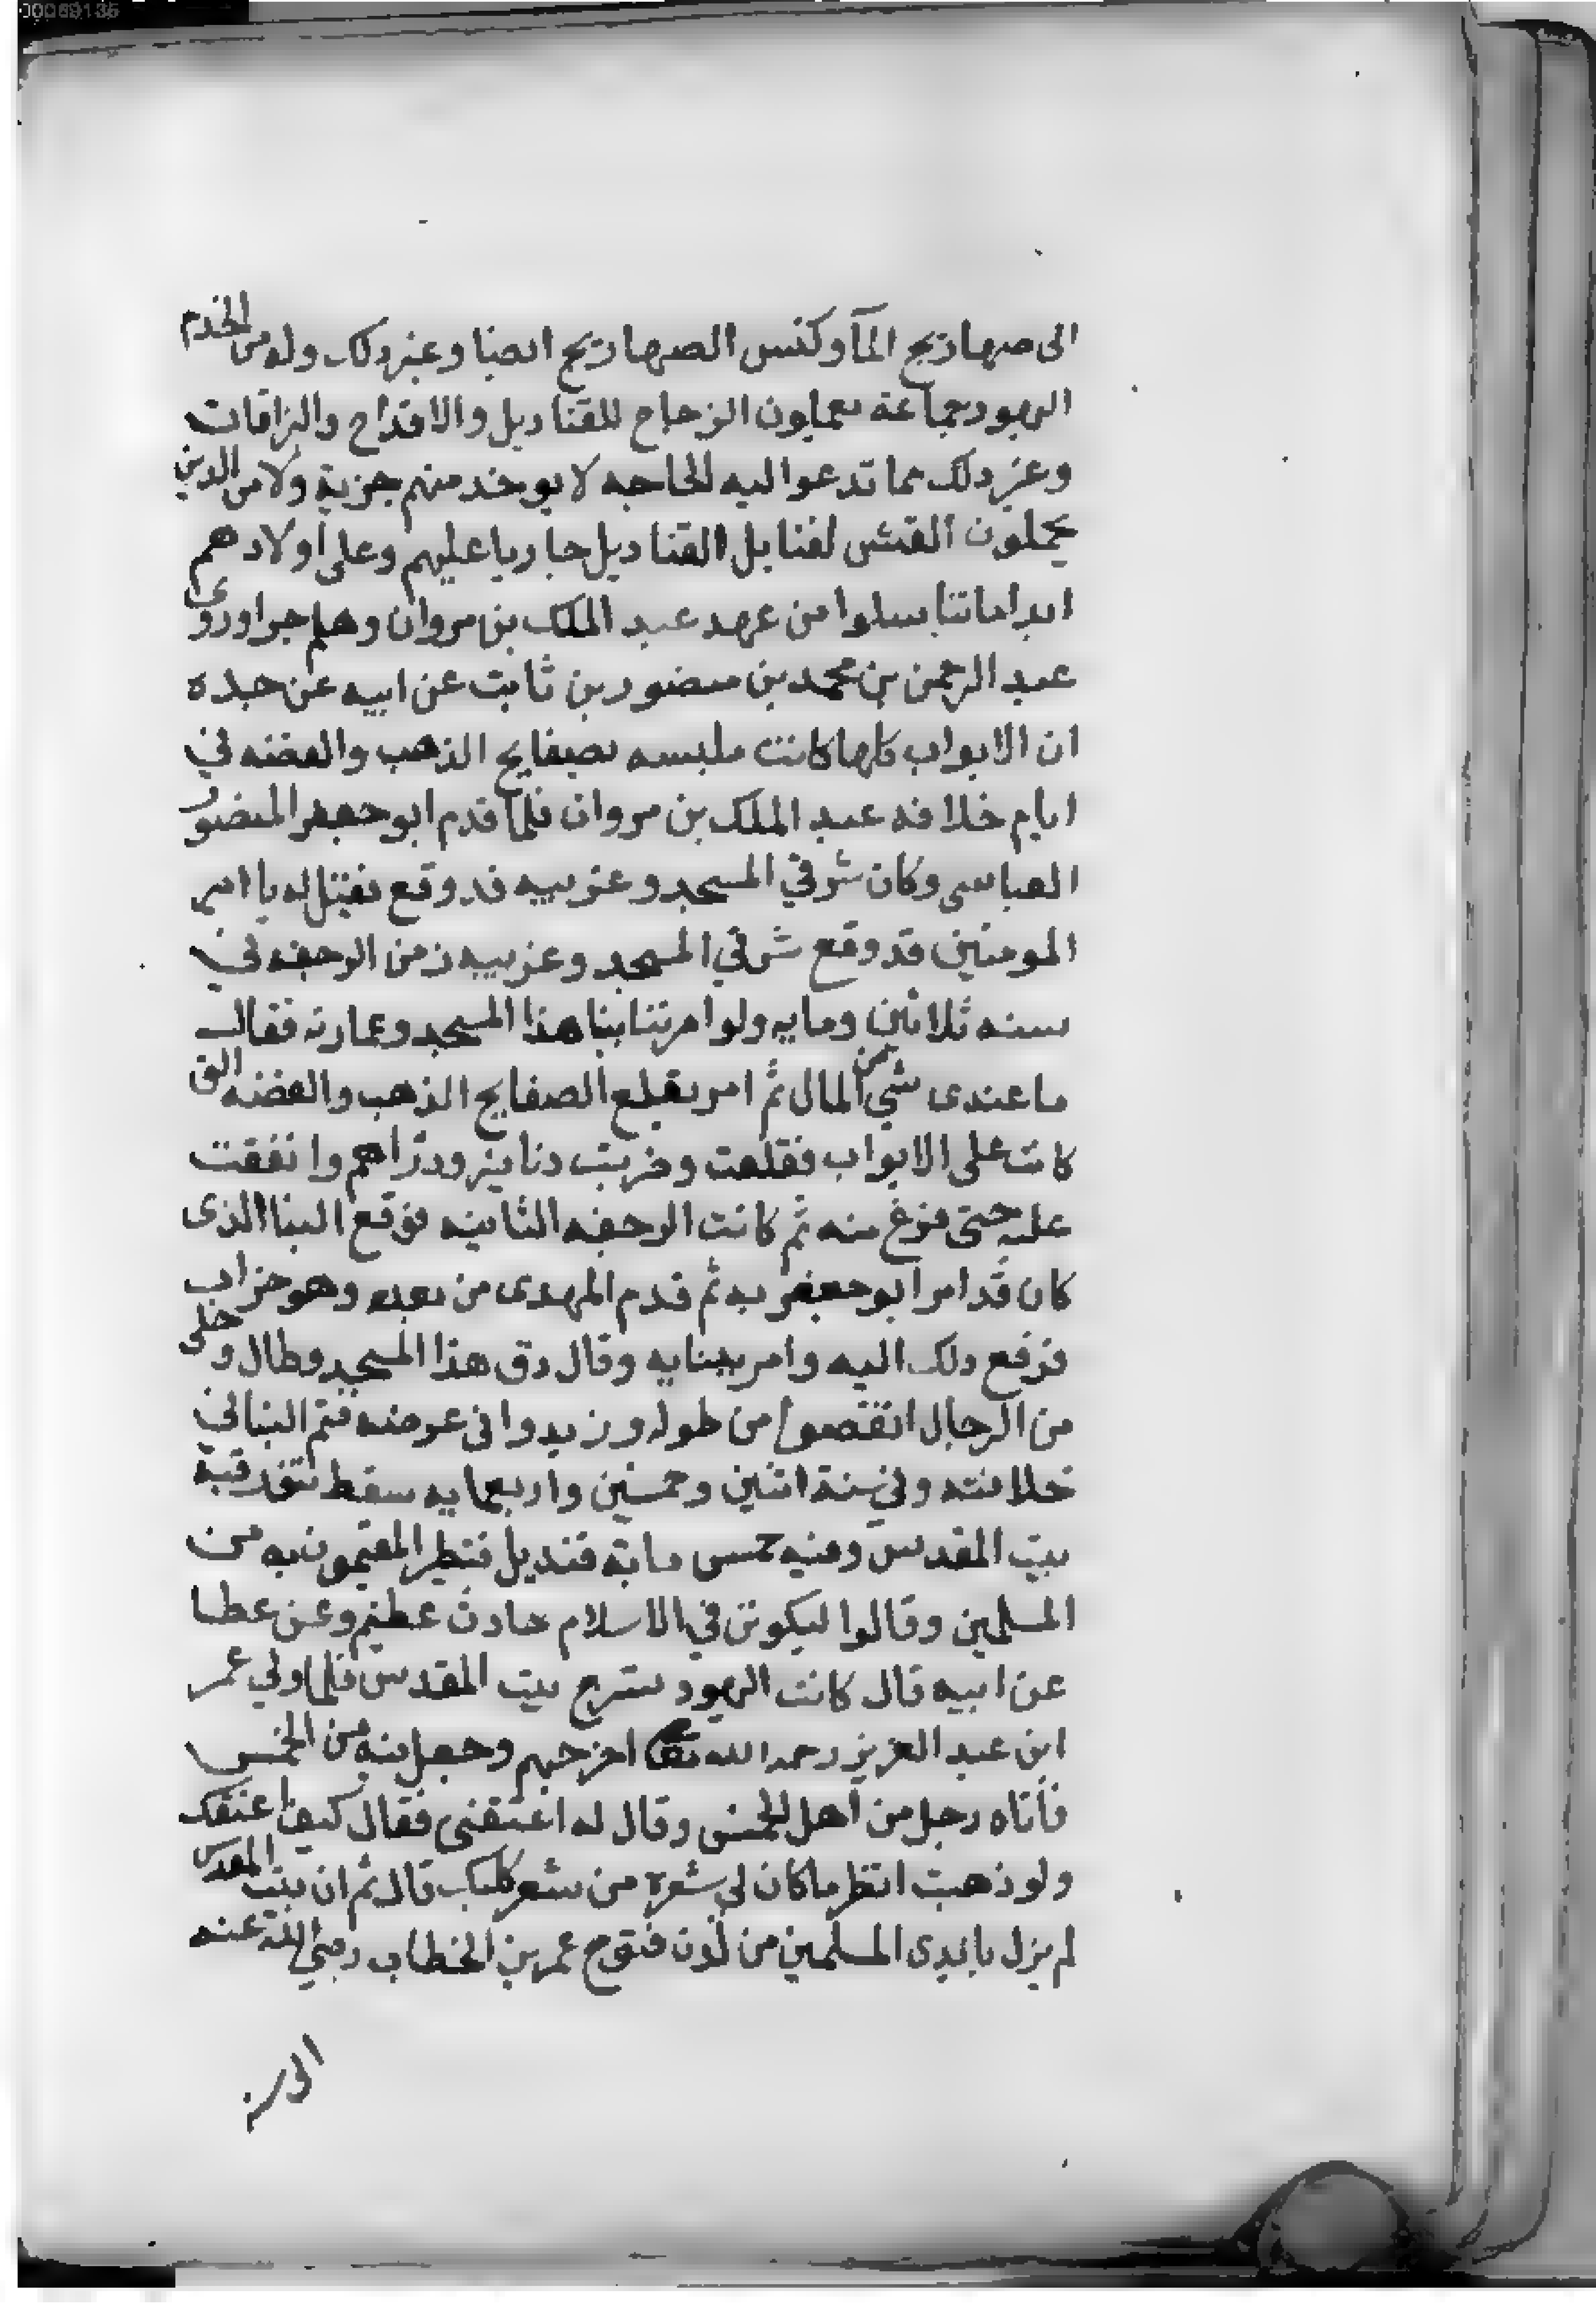 00069135
الى صهاريج المآ وكنس الصهاريج ايضا وغير ذلك وله من الخدم
اليهود جماعة يعملون الزجاج للقناديل والاقداح والبزاقات
وغير ذلك مما تدعوا اليه للحاجه لا يوخذ منهم جزية ولا من الذين
يحملون القش لفتايل القناديل جاريا عليهم وعلى أولادهم
ابدا ما تناسلوا من عهد عبد الملك بن مروان وهلم جرا وروى
عبد الرحمن بن محمد بن منصور بن ثابت عن ابيه عن جده
ان الابواب كلها كانت ملبسه بصفايح الذهب والفضه في
ايام خلافه عبد الملك بن مروان فلما قدم ابو جعفر المنصور
العباسى وكان شرقي المسجد وغربيه قد وقع فقيل له يا امير
المومنين قد وقع شرقي المسجد وغربيه زمن الرجفه في
سنه ثلاثين ومايه ولو امرتنا ببنا هذا المسجد وعمارته فقال
ما عندى شي من المال ثم امر بقلع الصفايح الذهب والفضه التى
كانت على الابواب فقلعت وضربت دنانير ودراهم وانفقت
عليه حتى فرغ منه ثم كانت الرجفه الثانيه فوقع البنا الذى
كان قد امر ابو جعفر به ثم قدم المهدى من بعده وهو خراب
فرفع ذلك اليه وامر ببنايه وقال دق هذا المسجد وطال وخلى
من الرجال انقصوا من طوله وزيدوا فى عرضه فتم البنا في
خلافته وفي سنة اثنين وخمسين واربعمايه سقط تنور قبة
بيت المقدس وفيه خمس ماية قنديل فتطير المقيمون به من
المسلمين وقالوا ليكونن في الاسلام حادث عظيم وعن عطا
عن ابيه قال كانت اليهود تسرج بيت المقدس فلما ولي عمر
ابن عبد العزيز رحمه الله تعالى اخرجهم وجعل فيه من الخمس
فأتاه رجل من أهل الخمس وقال له اعتقنى فقال كيف اعتقك
ولو ذهبت انظر ما كان لي شعرة من شعر كلبك قال ثم ان بيت المقدس
لم يزل بايدى المسلمين من لدن فتوح عمر بن الخطاب رضي الله عنه